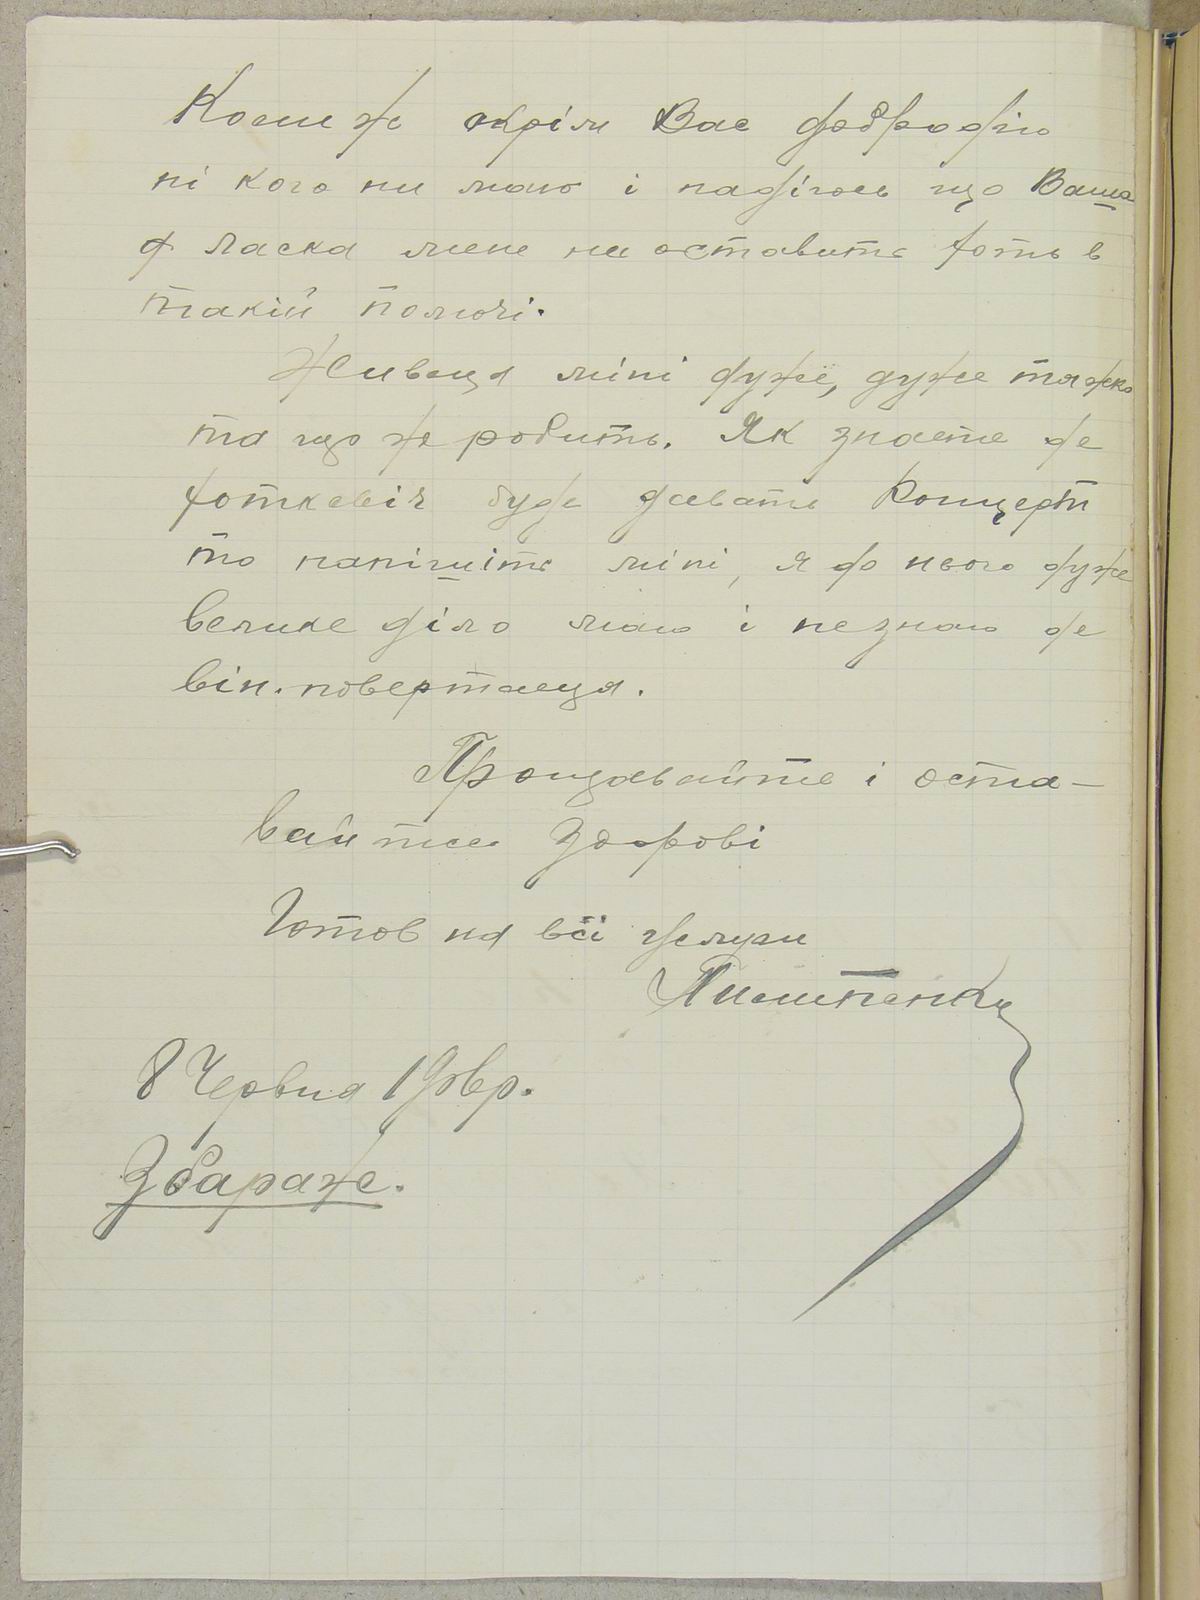 Коли же окрім Вас добродію
ні кого ни маю і надіюсь що Ваша
ласка мене не оставить хоть в
такій помочі.
Живеця міні дуже, дуже тяжко
та що же робить. Як знаете де
Хоткевіч буде давать Концерт
то напішіть міні, я до нього дуже
велике діло маю і незнаю де
він повертаеця.
Прощавайте і оста-
вайтесь Здорові
Готов на всі услуги
8 Червця р.
Збараже.